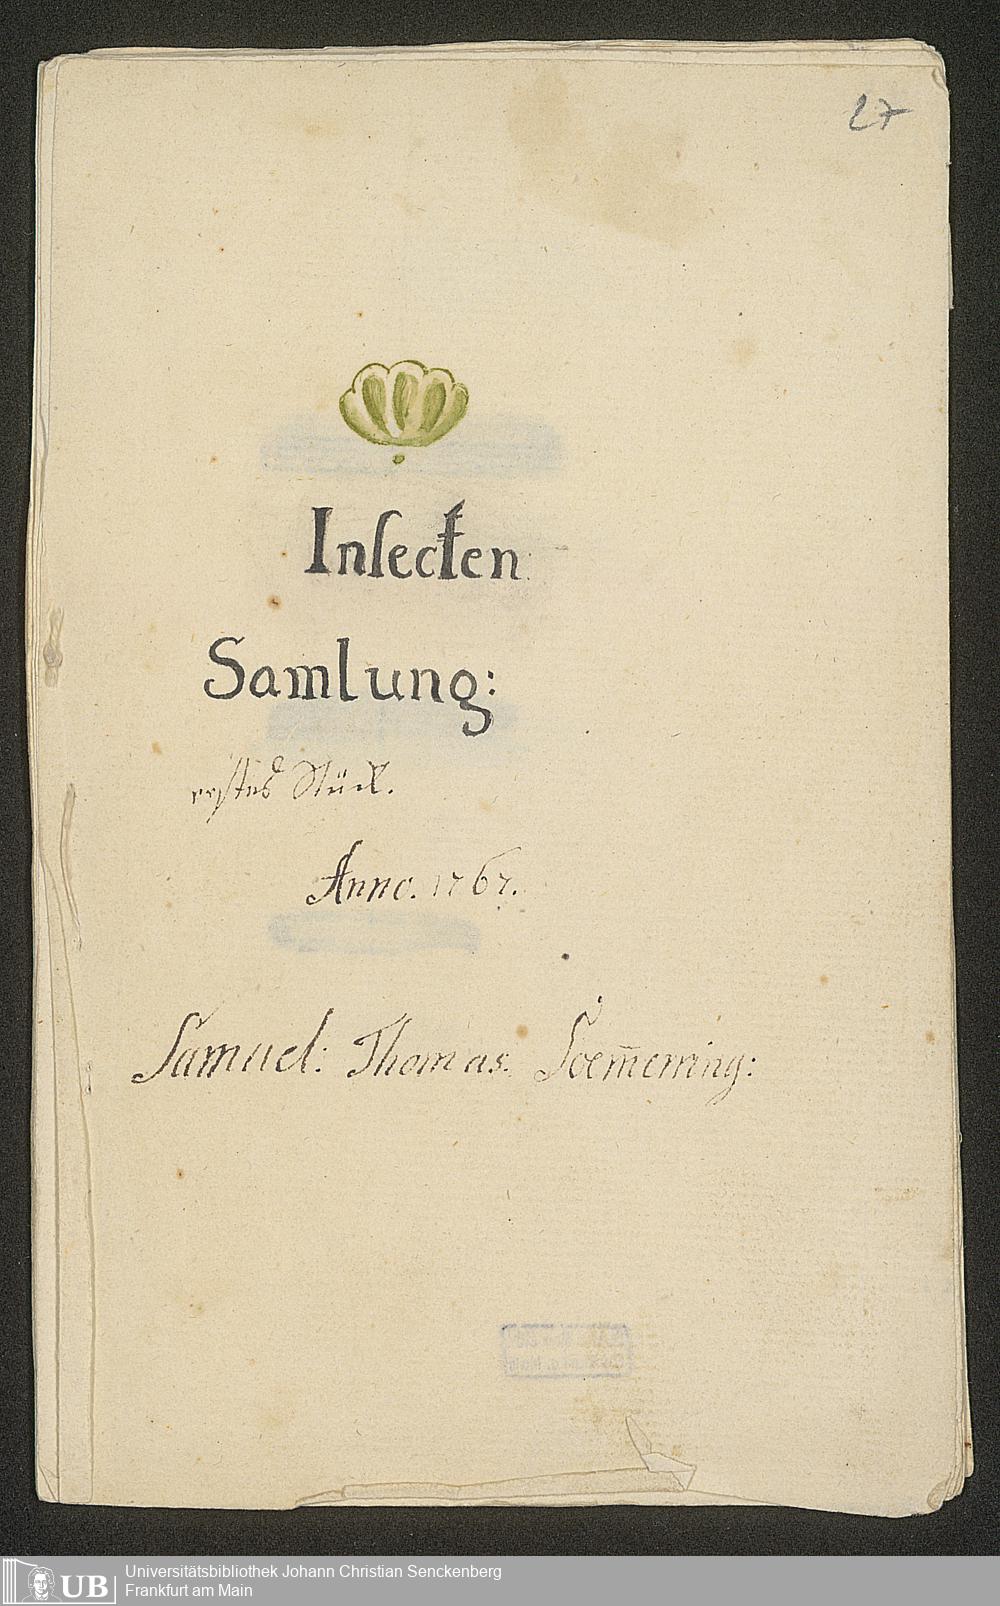 27
Inſecten
Samlung:
erſtes Stück.
Anno. 1767.
Samuel: Thomas. Soem̅erring:
UB
Universitätsbibliothek Johann Christian Senckenberg
Frankfurt am Main